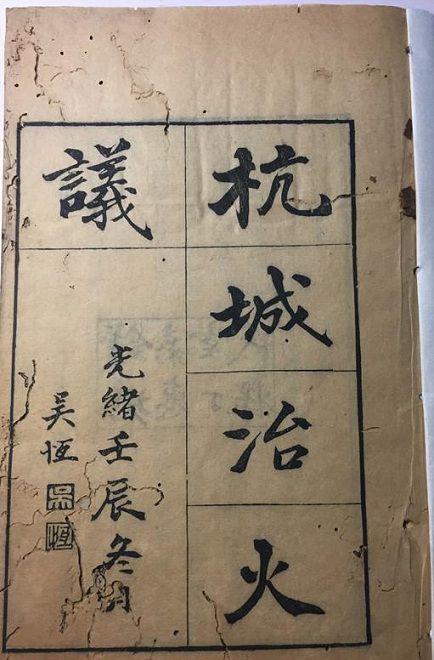 杭城治火
議
光緒壬辰冬月
吳恒